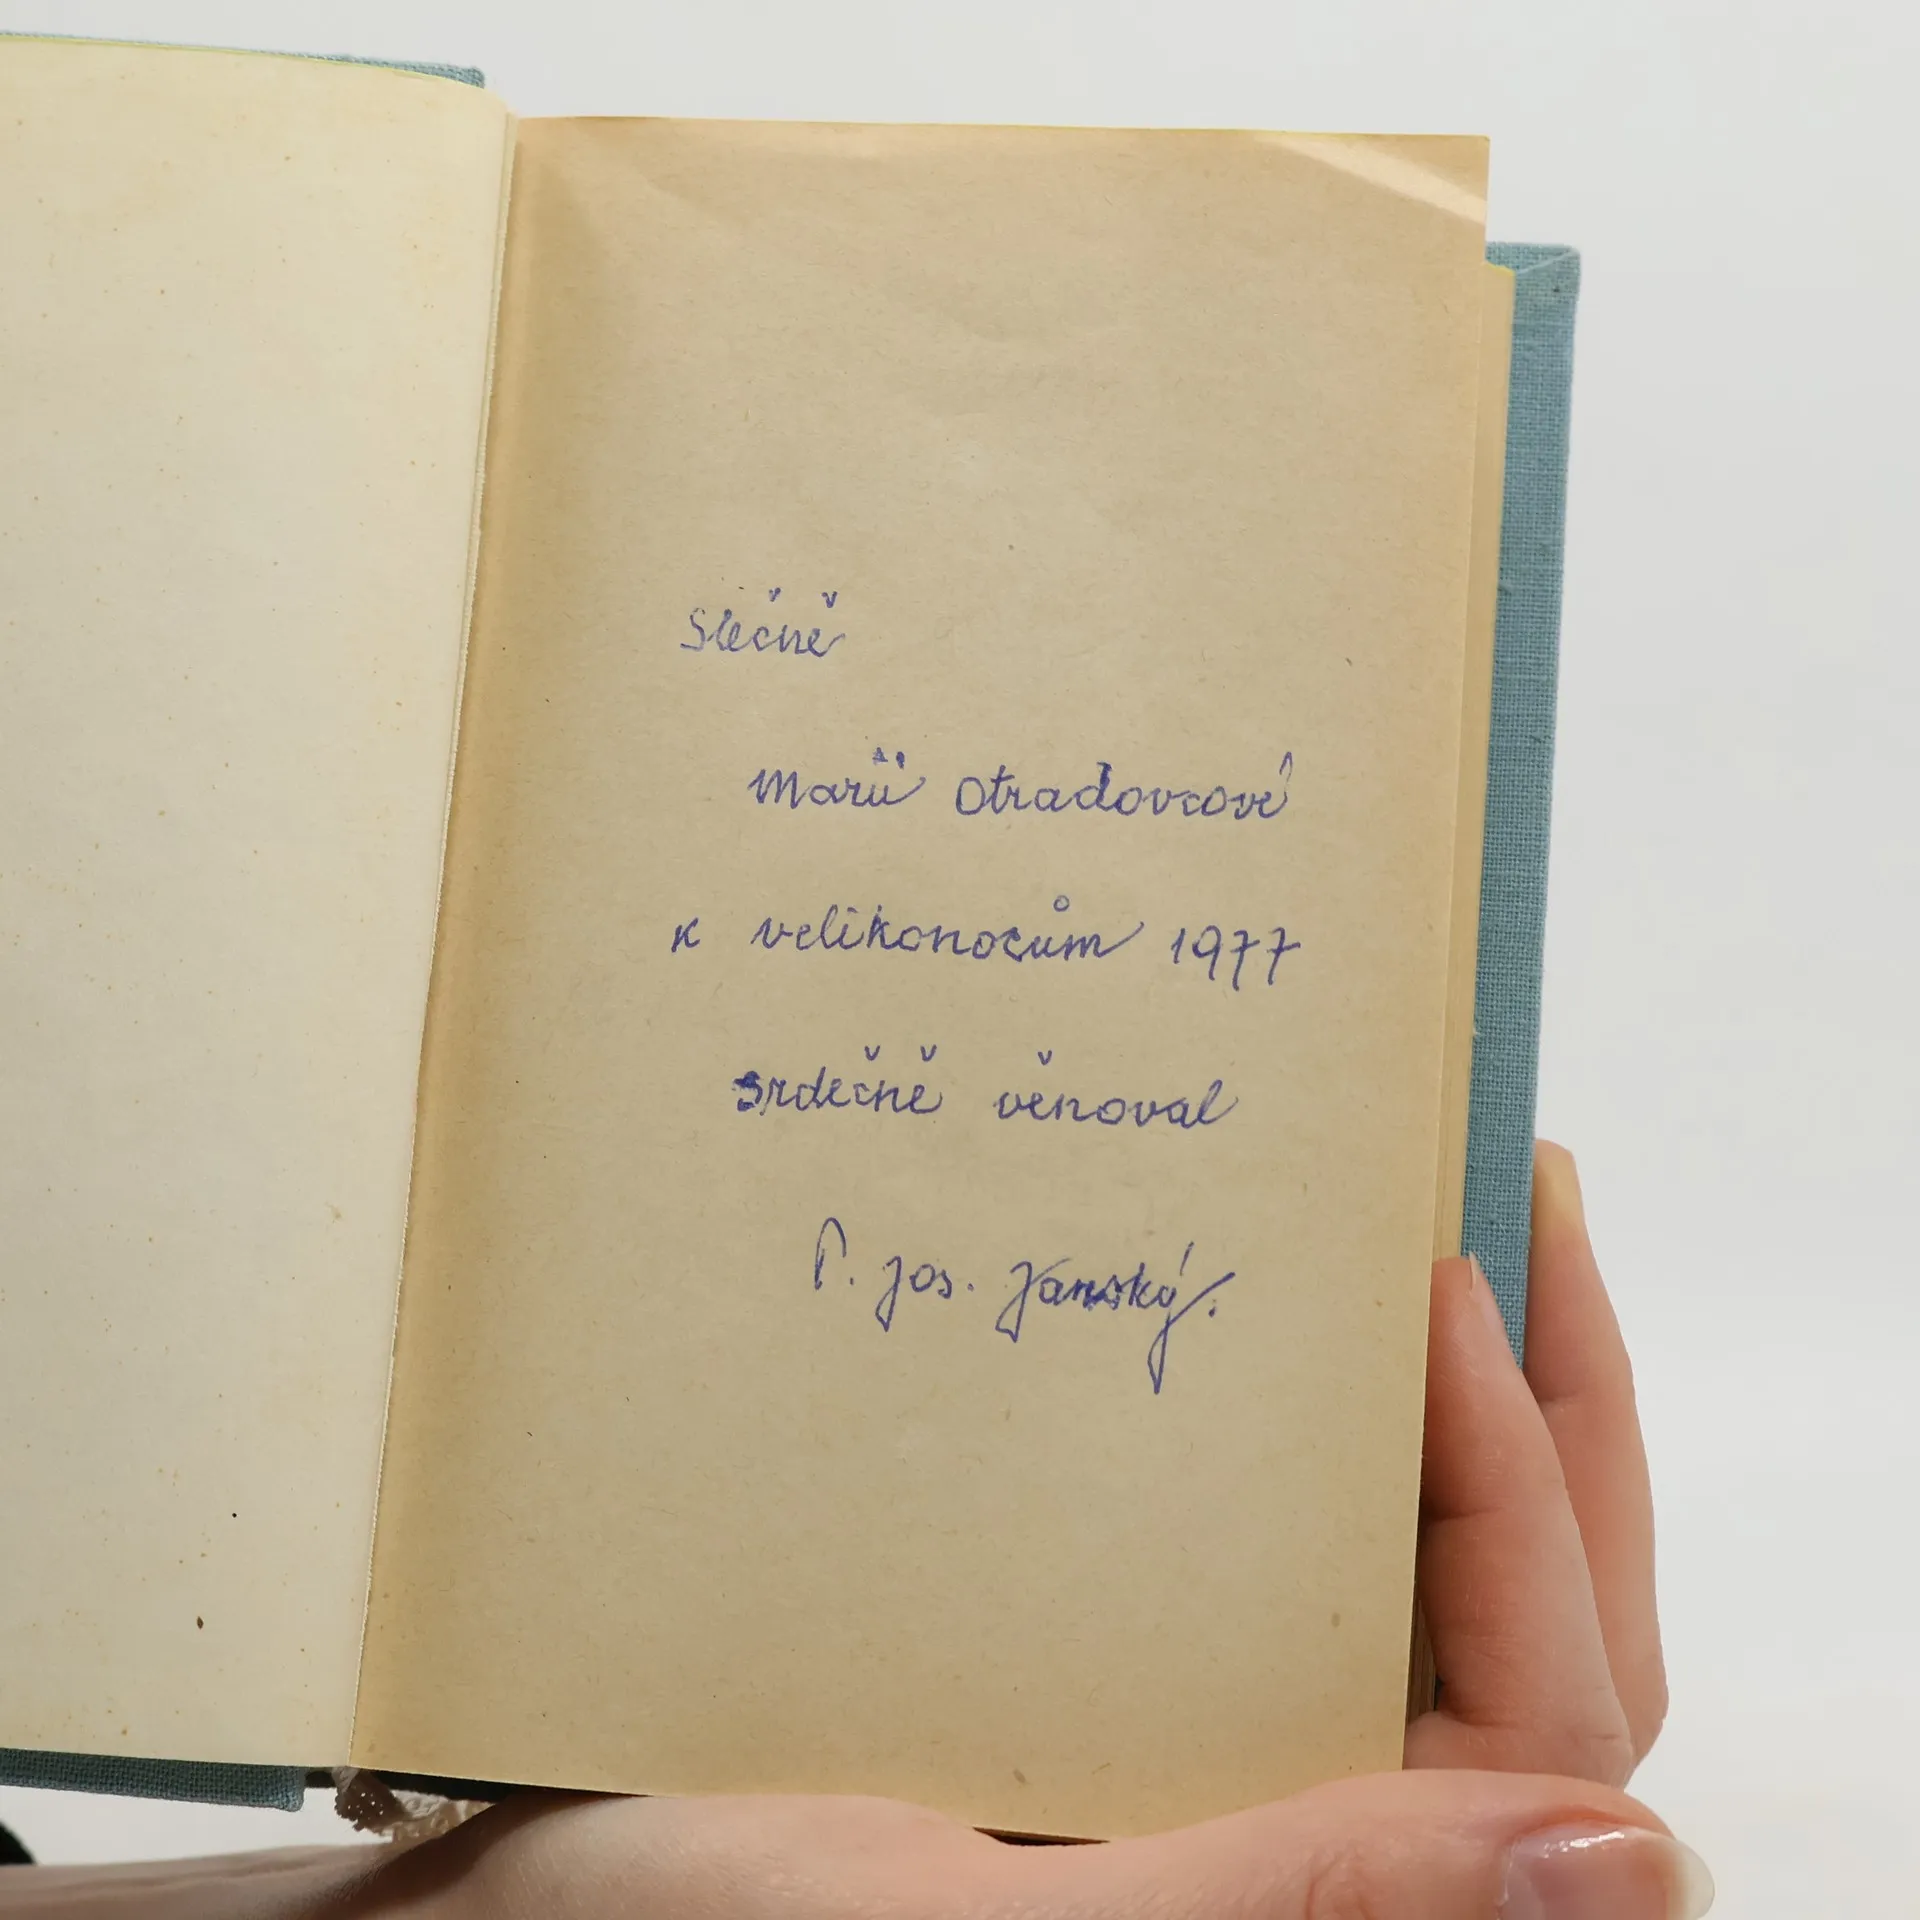 Slečně
Marii Otradovcové
k velikonocům 1977
srdečně věnoval
P. Jos. Jánský.